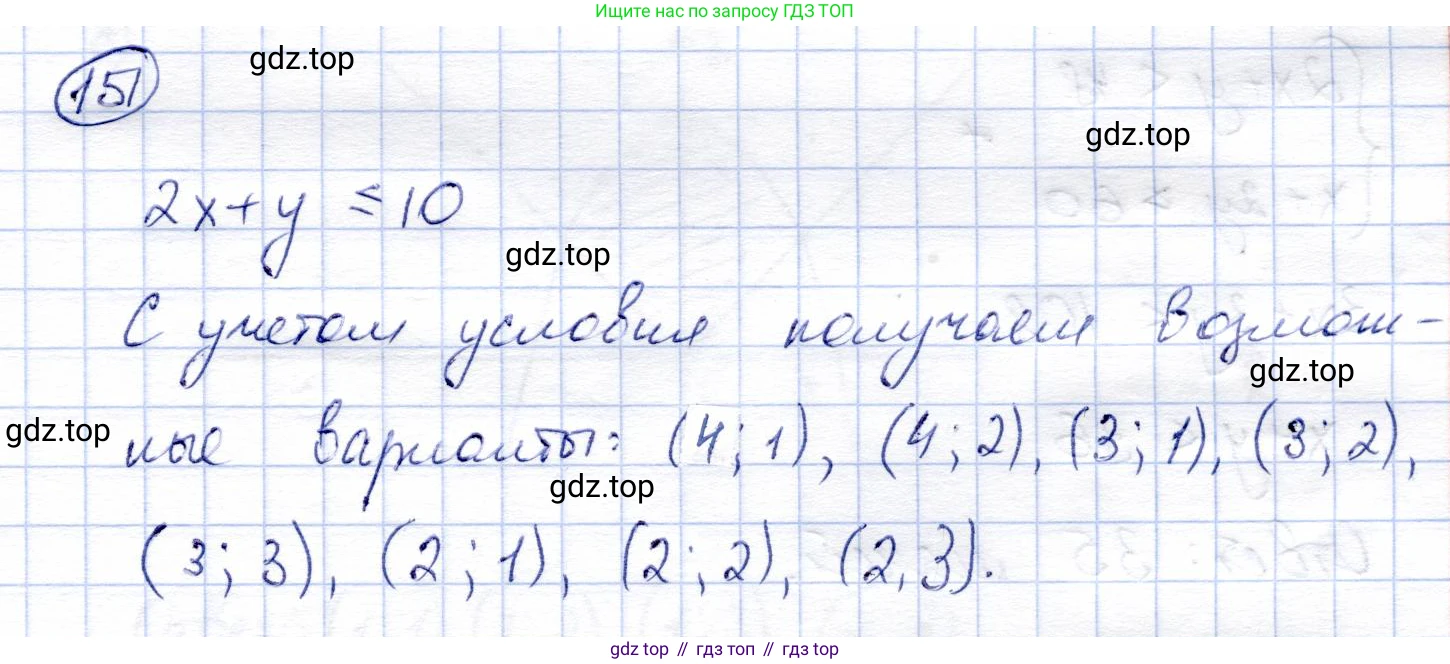 Ищите нас по запросу ГДЗ ТОП
151
gdz.top
gdz.top
2x+y ≤ 10
gdz.top
С учетом условия получаем возмож-
gdz.top
gdz.top
ные варианты: (4; 1), (4; 2), (3; 1), (3; 2),
gdz.top
(3; 3), (2; 1), (2; 2), (2, 3).
gdz top // гдз топ // гдз top